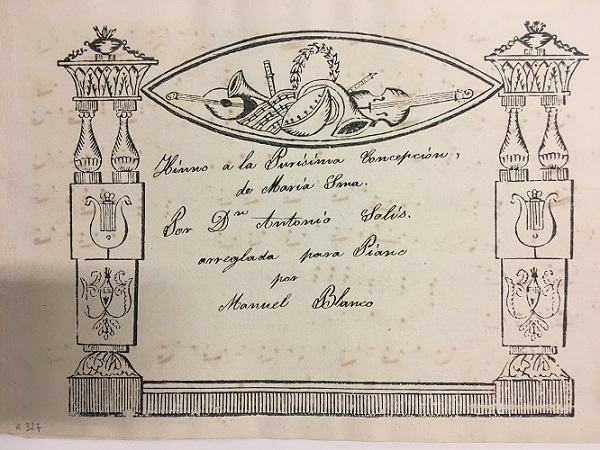 Hinno á la Purísima Concepción,
de María Sma.
Por Dn Antonio Solís.
arreglada para Piano
por
Manuel Blanco
R 327